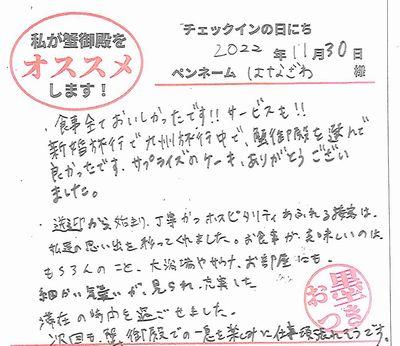 私が蟹御殿を
オススメ
します！
チェックインの日にち
2022年11月30日
ペンネーム はなざわ 様
・食事全ておいしかったです!! サービスも!!
新婚旅行で九州旅行中で、蟹御殿を選んで
良かったです。サプライズのケーキ、ありがとうござい
ました。
・送迎から始まり、丁寧かつホスピタリティあふれる接客は、
私達の思い出を彩ってくれました。お食事が美味しいのは
もちろんのこと、大浴場やサウナ、お部屋にも
細かい気遣いが見られ、充実した
滞在の時間を過ごせました。
次回も、蟹御殿での一息を楽しみに仕事頑張れそうです。
お墨つき